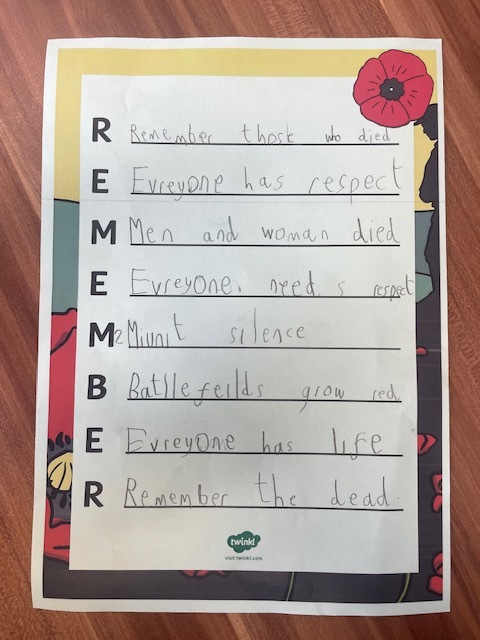 R Remember those who died
E Evreyone has respect
M Men and woman died
E Evreyone. need s respect
M 2 Miunit silence
B Batllefeilds grow red
E Evreyone has life
R Remember the dead.
twinkl
visit twinkl.com